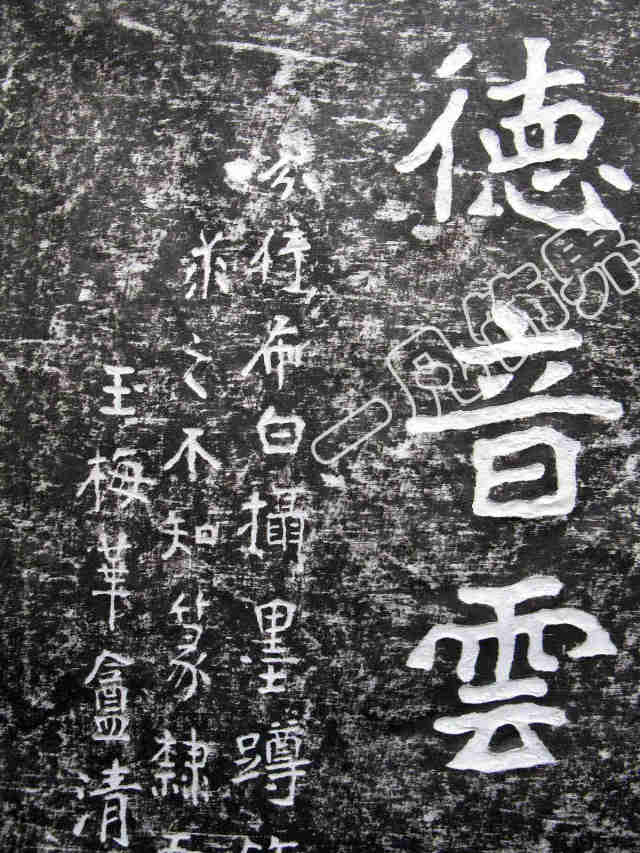 德音雲
分布白攝墨蹲
求之不知篆隸
玉梅華盦清